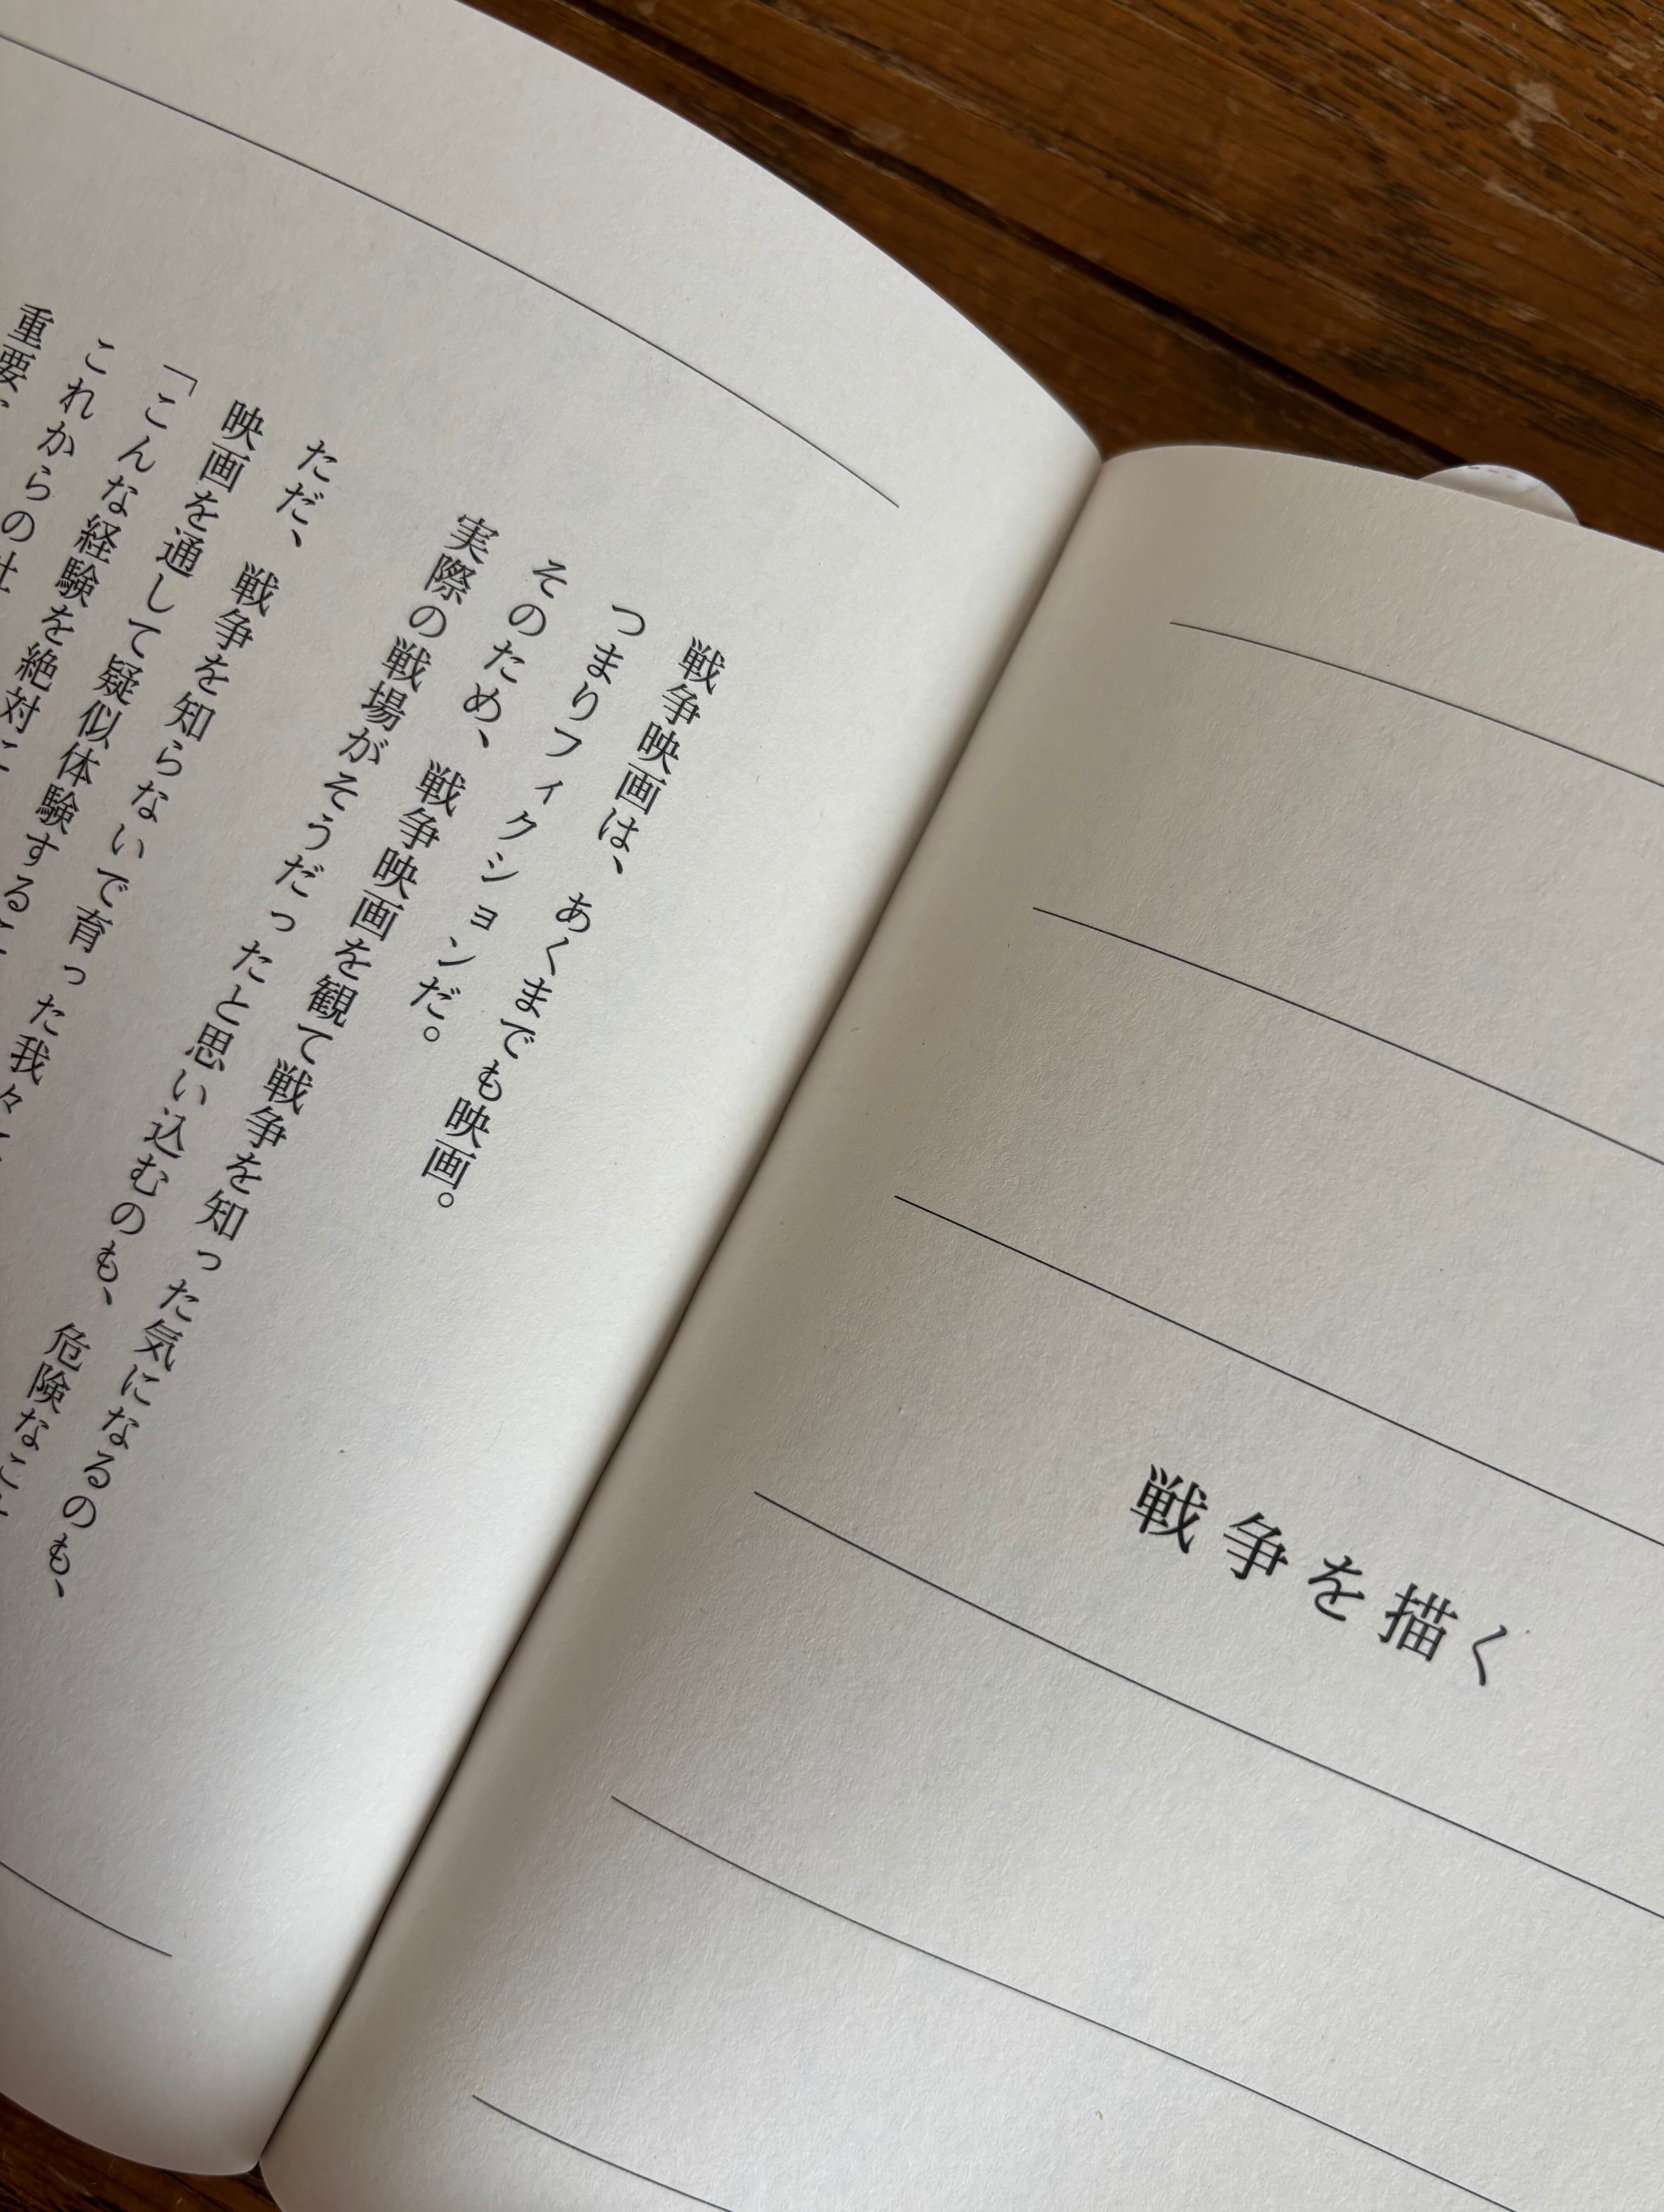 戦争を描く
戦争映画は、あくまでも映画。
つまりフィクションだ。
そのため、戦争映画を観て戦争を知った気になるのも、
実際の戦場がそうだったと思い込むのも、危険なこ
ただ、戦争を知らないで育った我々
映画を通して疑似体験する
「こんな経験を絶対に
これからの
重要